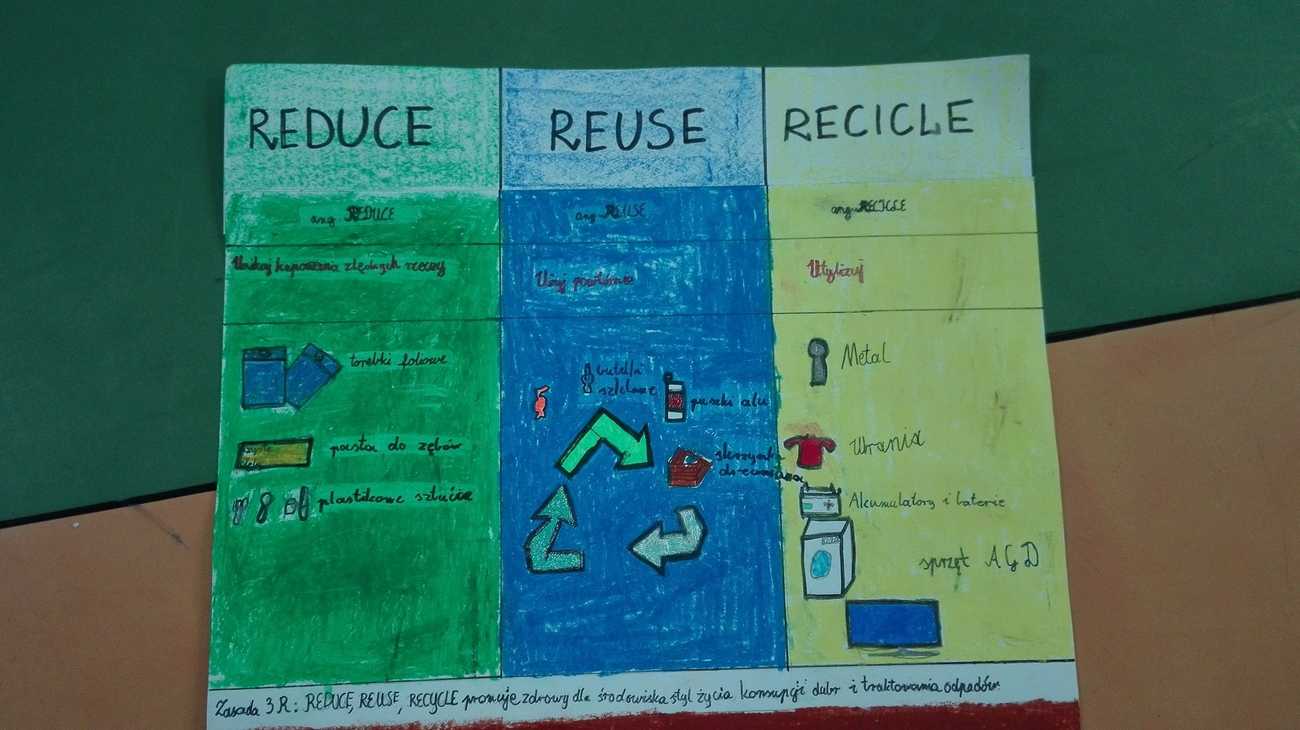 REDUCE
REUSE
RECICLE
ang. REDUCE
ang. REUSE
ang. RECICLE
Unikaj kupowania zbędnych rzeczy
Użyj powtórnie
Utylizuj
torebki foliowe
pasta do zębów
plastikowe sztućce
butelki
szklane
puszki alu
skrzynka
drewniana
Metal
Ubrania
Akumulatory i baterie
sprzęt AGD
Zasada 3R: REDUCE, REUSE, RECYCLE promuje zdrowy dla środowiska styl życia konsupcji dubr i traktowania odpadów